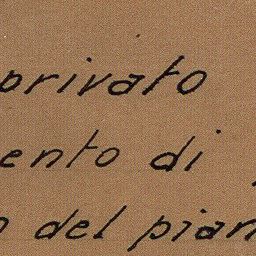 privato
ento di
del pian